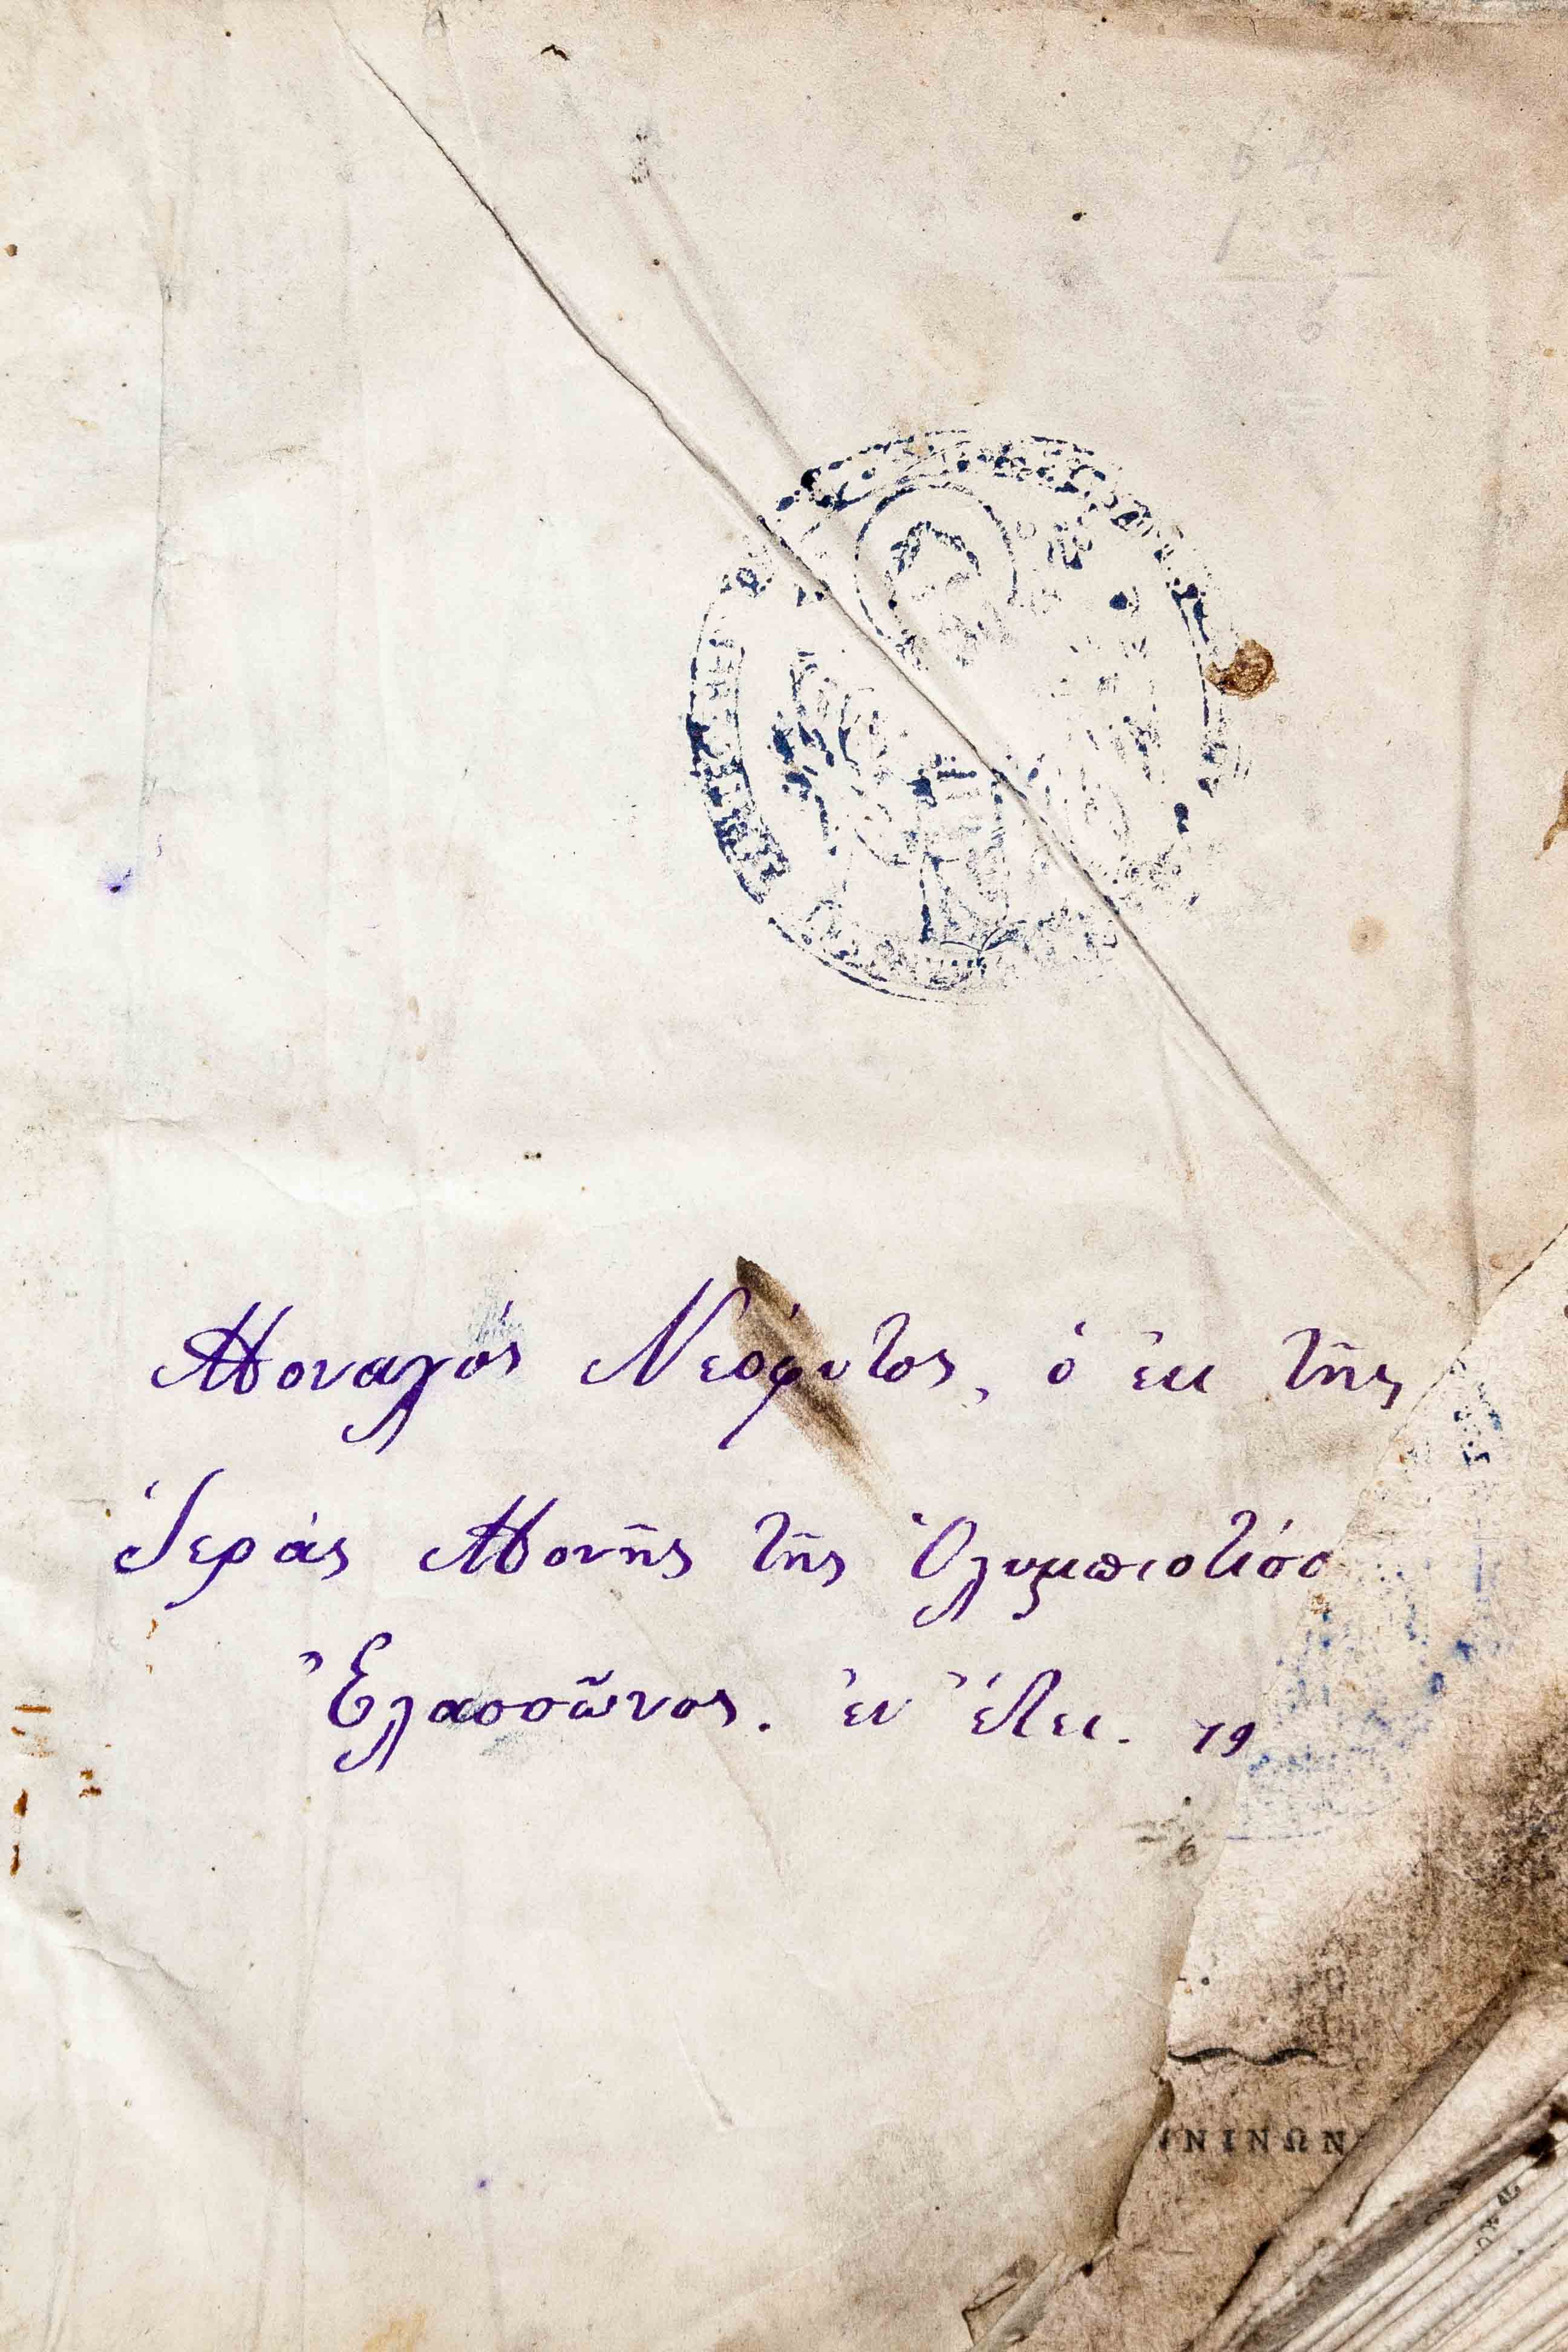 Μοναχός Νεόφυτος, ὁ ἐκ τῆς
Ἱερᾶς Μονῆς τῆς Ὀλυμπιοτίσσ
Ἐλασσῶνος. ἐν ἔτει. 19